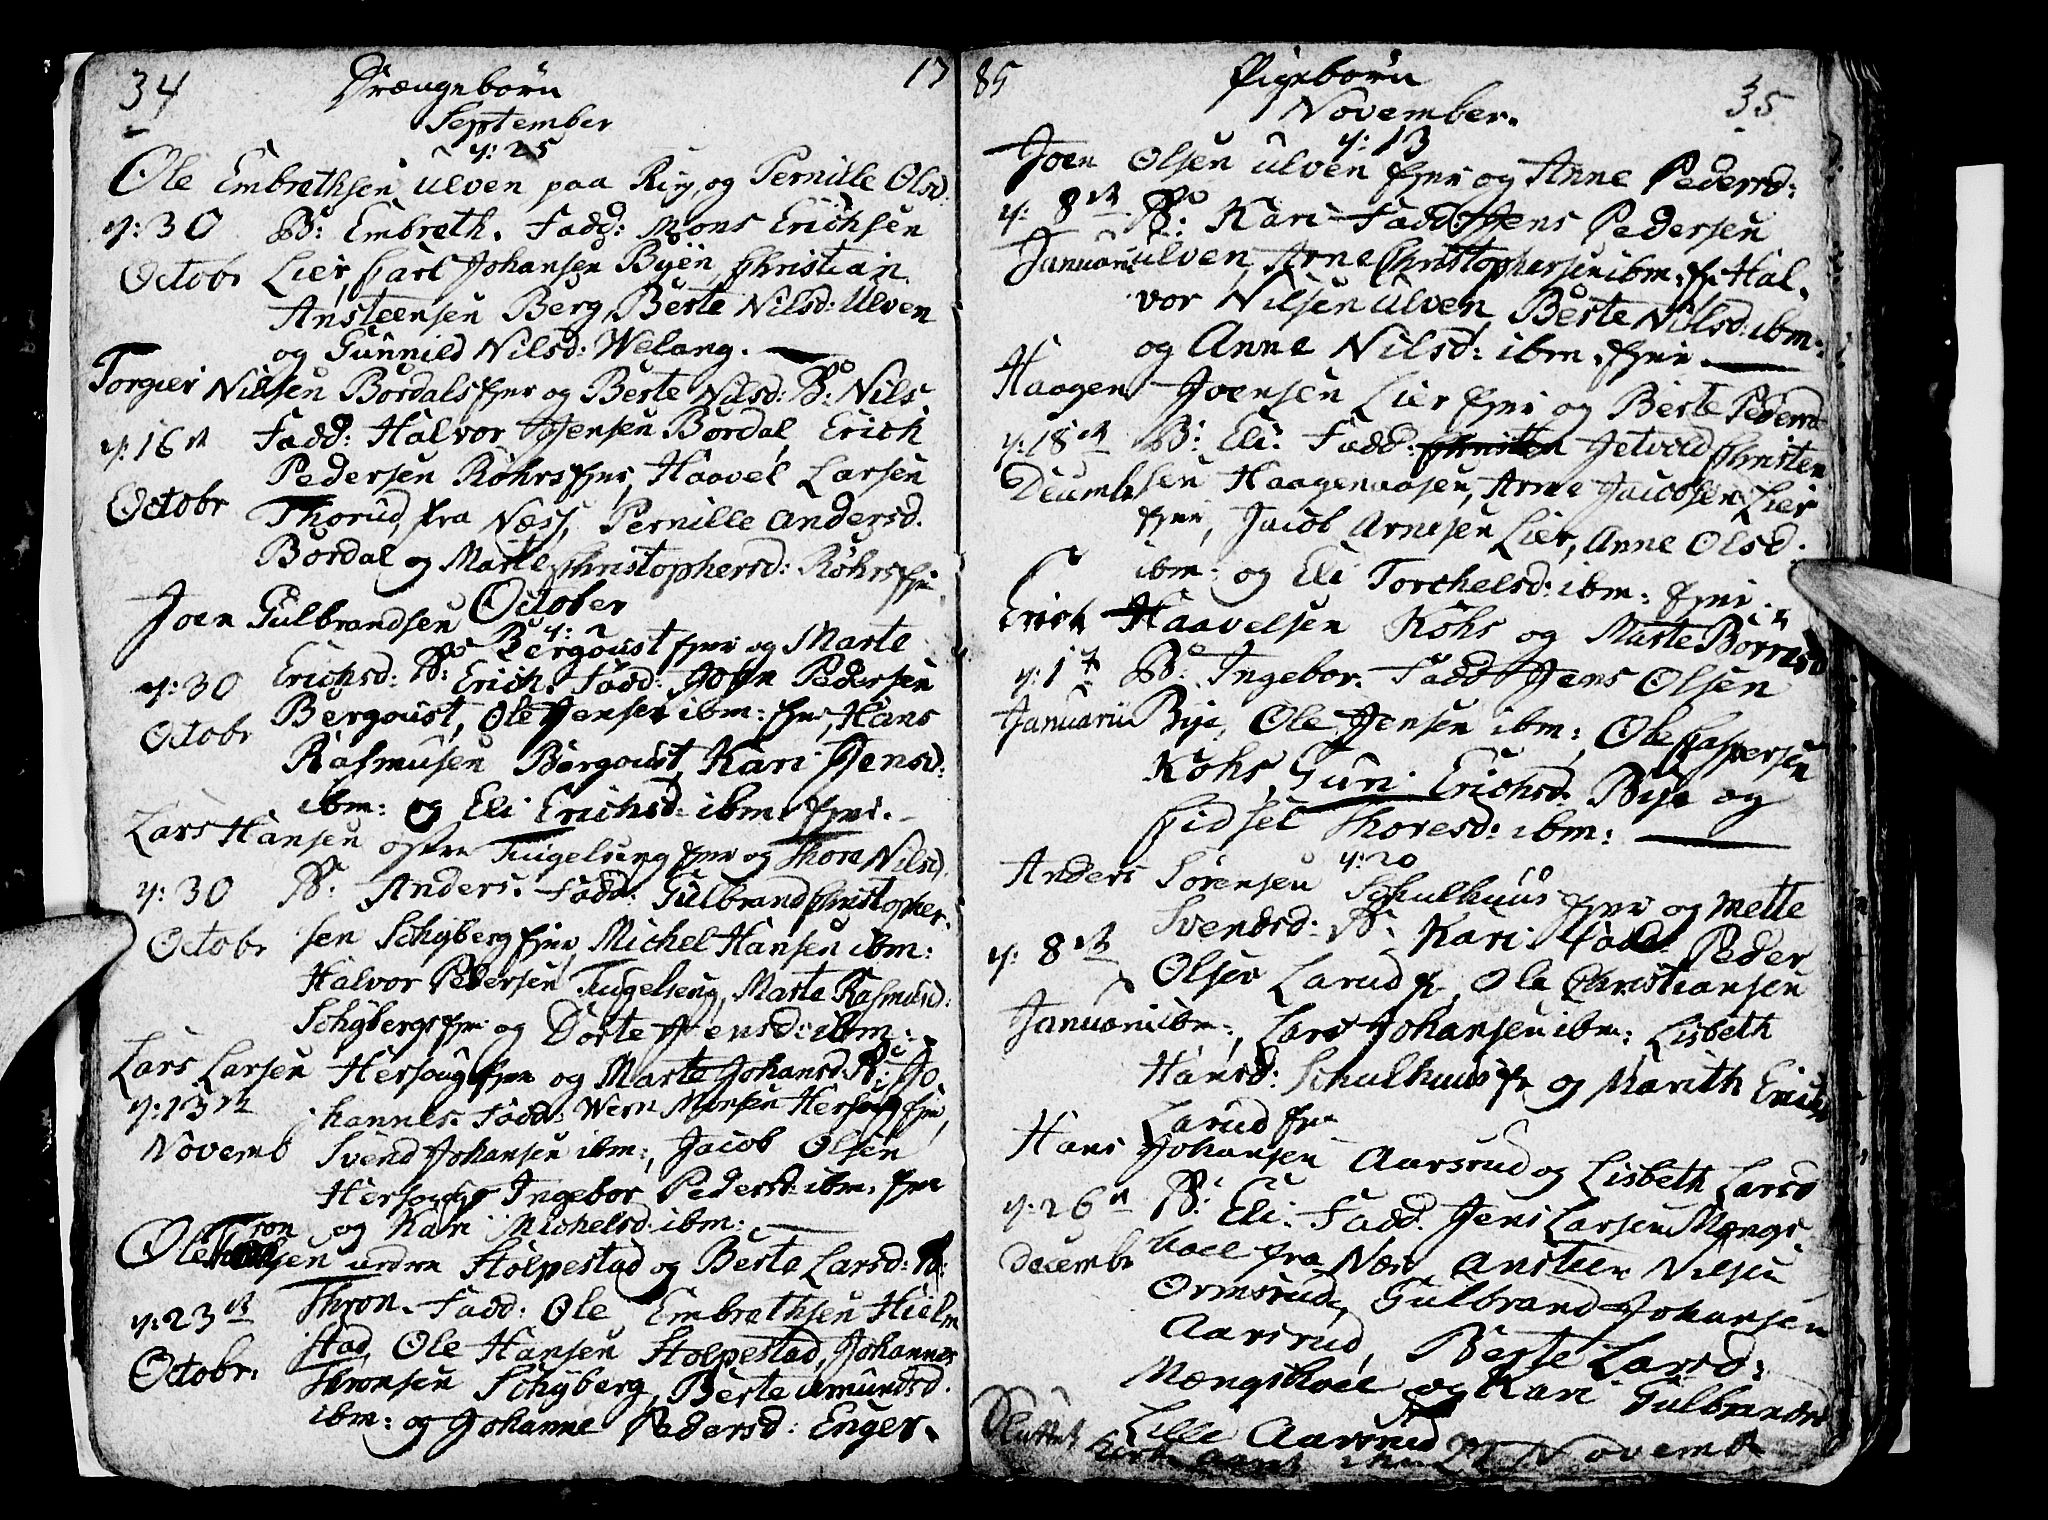 34 Drængebörn 17
September
y: 25
Ole Embrethsen Ulven paa Riy, og Pernille Olsd.
y: 30 B: Embreth. Fadd: Mons Erichsen
Octobr Lier, Carl Johansen Byen, Christian
Ansteensen Berg, Berte Nilsd: Ulven
og Gunnild Nilsd: Welang.
Torgier Nilsen Bordals eyer og Berte Nilsd: B: Nils
y: 16 Fadd: Halvor Jensen Bordal, Erich
Pedersen Röhrs eyer, Haavel Larsen
Octobr Thorud, fra Næss, Pernille Andersd.
Bordal og Marte Christophersd: Röhrs eyer
October
y: 2
Joen Gulbrandsen Bergoust eyer og Marte
Erichsd: B: Erich. Fadd: John Pedersen
y: 30 Bergoust, Ole Jensen ibm: eyer, Hans
Octobr Rasmusen Bergoust, Kari Jensd:
ibm: og Eli Erichsd: ibm: eyer.
Lars Hansen Tingelseng eyer og Thora Nilsd.
y: 30 B: Anders. Fadd: Gulbrand Christopher-
Octobr sen Schyberg eyer, Michel Hansen ibm:
Halvor Pedersen Tingelseng, Marte Rasmusd:
Schybergs eyer og Dorte Jensd: ibm:
Lars Larsen Hersoug eyer og Marte Johansd. B: Jo
y: 13 hannes. Fadd: Wern Monsen Hersoug eyer,
Novemb Svend Johansen ibm:, Jacob Olsen
Hersoug, Ingebor Pedersd: ibm: eyer
og Kari Michelsd: ibm:
Ole Tronsen nedre Stolpestad og Berte Larsd: B:
y: 23 Thron. Fadd: Ole Embrethsen Hielm
stad, Ole Hansen Stolpestad, Johannes
Octobr. Thronsen Schyberg, Berte Amundsd.
ibm: og Johanne Pedersd: Enger.
85 Pigebörn 35
November.
y: 13
Joen Olsen Ulven eyer og Anne Pedersd:
y: 8 B: Kari Fadd: Jens Pedersen
Januarii Ulven, Arne Christophersen ibm: eyer Hal-
vor Nilsen Ulven, Berte Nilsd: ibm:
og Anne Nilsd: ibm: eyer.
Haagen Joensen Lier eyer og Berte Pedersd
y: 18 B: Eli. Fadd: Jetvold Christen
Decembr sen Haagenaasen, Arne Jacobsen Lier
eyer, Jacob Arnesen Lier, Anne Olsd.
ibm: og Eli Torchelsd: ibm: eyer.
Erich Haavelsen Kohs og Marte Börresd
y: 1 B: Ingebor. Fadd Jens Olsen
Januarii Bye, Ole Jensen ibm:, Ole Caspersen
Kohs, Guri Erichsd. Bye og
Cidsel Thoresd: ibm:
y: 20
Anders Sörensen Schulhuus eyer og Mette
Svendsd: B: Kari. Fadd: Peder
y: 8 Olsen Larud, Ole Christiansen
Januarii ibm:, Lars Johansen ibm: Lisbeth
Hansd: Schulhuus og Marith Erichsd
Larud eyer
Hans Johansen Aarsrud og Lisbeth Larsd
y: 26 B: Eli. Fadd. Jens Larsen Mængs-
Decembr hoel fra Næs, Ansteen Nilsen
Ormsrud, Gulbrand Johansen
Aarsrud, Berte Larsd:
Mængshoel og Kari Gulbrandsd
Lille Aarsrud
Sluttet Kirke Aaret den 27 Novemb